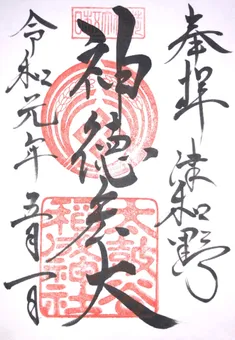 奉拝 津和野
神徳宏大
令和元年五月一日
太鼓谷稲成神社